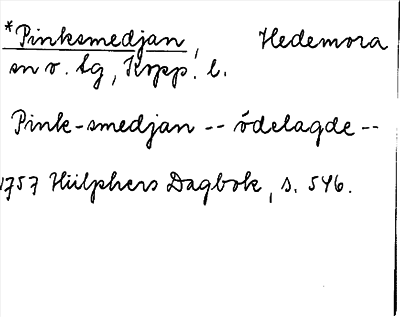 *Pinksmedjan, Hedemora
sn v. tg, Kopp. l.
Pink-smedjan -- ödelagde --
1757 Hülphers Dagbok, s. 546.